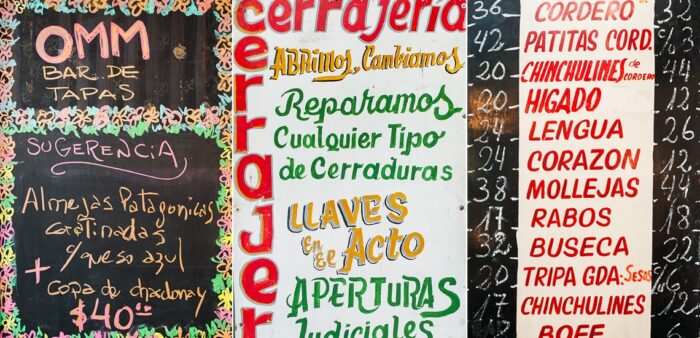 OMM
BAR DE
TAPAS
SUGERENCIA
Almejas Patagonicas
Gratinadas
queso azul
+
copa de chardonay
$40
cerrajería
cerrajer
ABRimos, Cambiamos
Reparamos
Cualquier Tipo
de Cerraduras
LLAVES
En El Acto
APERTURAS
Judiciales
36 CORDERO 32
42 PATITAS CORD.
20 CHINCHULINES de CORDERO 44
20 HIGADO 12
24 LENGUA
24 CORAZON 12
38 MOLLEJAS 44
17 RABOS 18
32 BUSECA 22
20 TRIPA GDA: SESOS
17 CHINCHULINES 12
BOFE